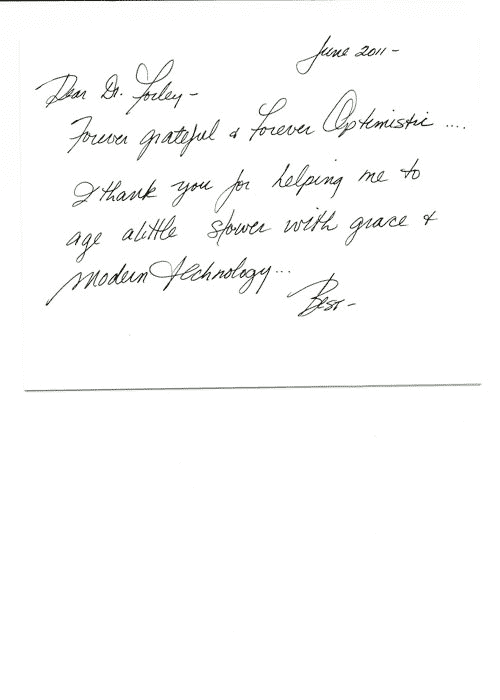 June 2011 -
Dear Dr. Forley -
Forever grateful & Forever Optimistic ....
I thank you for helping me to
age a little slower with grace &
modern technology...
Best -